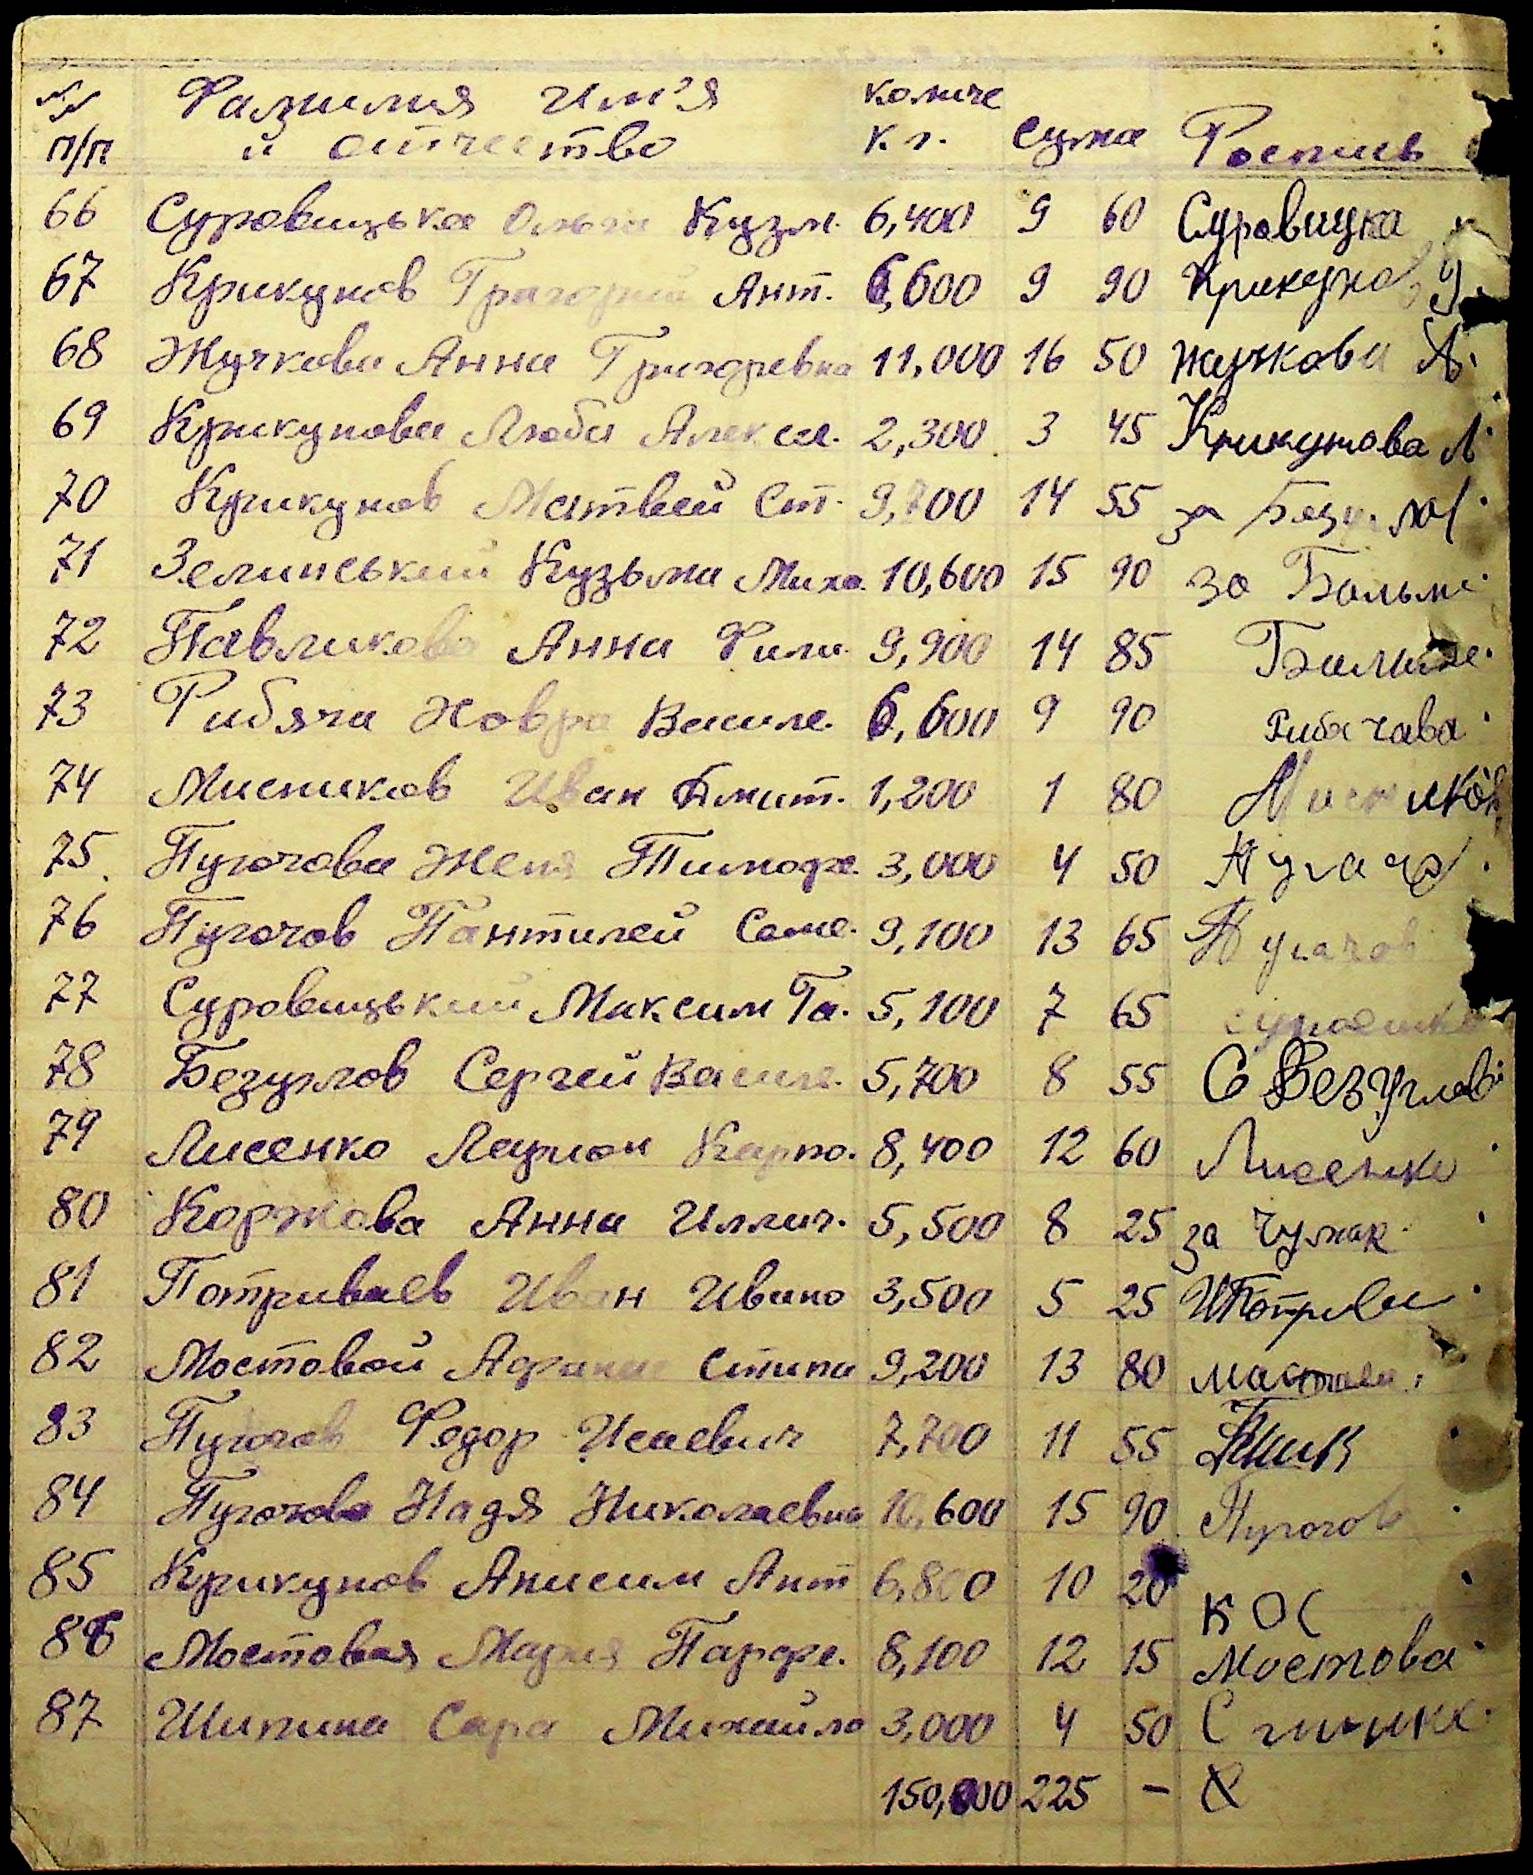 №№ Фамилия Им'я количе
п/п и отчество к.г. сума Роспись
66 Суровицька Ольга Кузм. 6,400 9 60 Суровицка
67 Крикунов Григорий Ант. 6,600 9 90 Крикунов
68 Жучкова Анна Григоревна 11,000 16 50 Жучкова А.
69 Крикунова Люба Алекса. 2,300 3 45 Крикунова Л
70 Крикунов Матвей Ст. 9,700 14 55 за
71 Зелинський Кузьма Миха. 10,600 15 90 за
72 Павликова Анна Фили. 9,900 14 85
73 Рибяча Ховра Васили. 6,600 9 90 Рибачава
74 Мисников Иван Дмит. 1,200 1 80
75. Пугочова Женя Тимофе. 3,000 4 50
76 Пугочов Пантилей Саме. 9,100 13 65 Пугачов
77 Суровицький Максим Га. 5,100 7 65
78 Безуглов Сергей Васили. 5,700 8 55 С Безуглов
79 Лисенко Ларион Карпо. 8,400 12 60 Лисенко
80 Коржова Анна Иллич. 5,500 8 25 за Чумак
81 Потриваев Иван Ивано 3,500 5 25
82 Мостовой Афанас Стипа 9,200 13 80
83 Пугочов Федор Исаевич 7,700 11 55
84 Пугочова Надя Николаевна 10,600 15 90 Пугочов
85 Крикунов Анисим Ант 6,800 10 20 КОС
86 Мостовая Мария Парфе. 8,100 12 15 Мостова
87 Шипина Сара Михайло 3,000 4 50
150,000 225 –